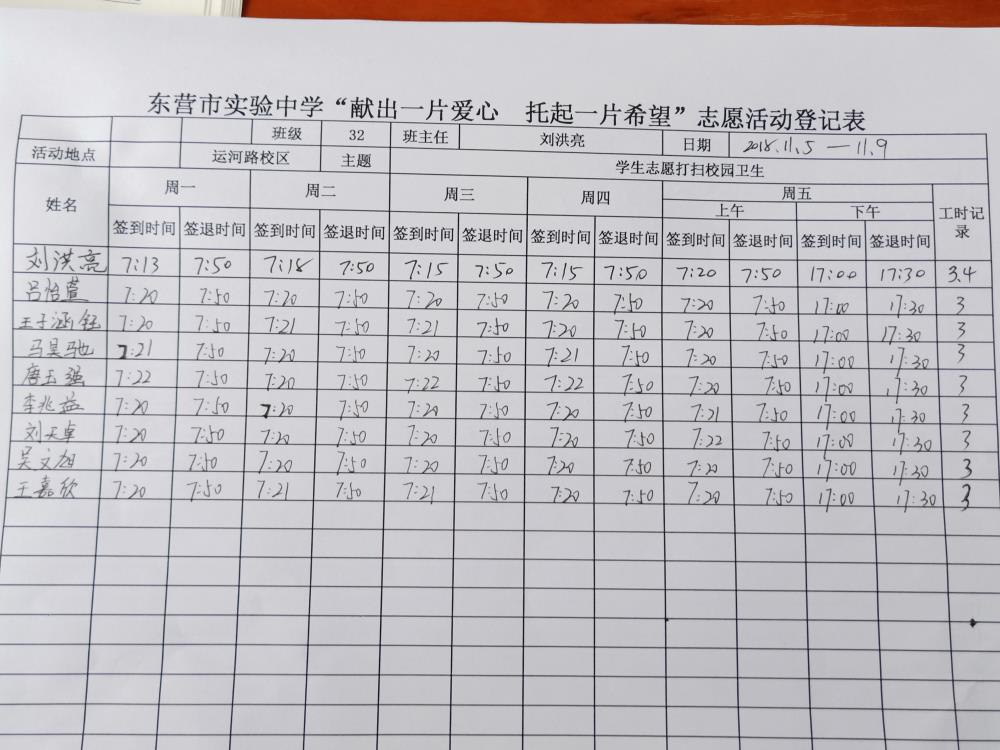 东营市实验中学“献出一片爱心 托起一片希望”志愿活动登记表
班级 32 班主任 刘洪亮 日期 2018.11.5 — 11.9
活动地点 运河路校区 主题 学生志愿打扫校园卫生
姓名 周一 周二 周三 周四 周五 工时记录
上午 下午
签到时间 签退时间 签到时间 签退时间 签到时间 签退时间 签到时间 签退时间 签到时间 签退时间 签到时间 签退时间
刘洪亮 7:13 7:50 7:18 7:50 7:15 7:50 7:15 7:50 7:20 7:50 17:00 17:30 3.4
吕怡萱 7:20 7:50 7:20 7:50 7:20 7:50 7:20 7:50 7:20 7:50 17:00 17:30 3
王子涵钰 7:20 7:50 7:21 7:50 7:21 7:50 7:20 7:50 7:20 7:50 17:00 17:30 3
马昊驰 7:21 7:50 7:20 7:50 7:20 7:50 7:21 7:50 7:20 7:50 17:00 17:30 3
唐玉强 7:22 7:50 7:20 7:50 7:22 7:50 7:22 7:50 7:20 7:50 17:00 17:30 3
李兆益 7:20 7:50 7:20 7:50 7:20 7:50 7:20 7:50 7:21 7:50 17:00 17:30 3
刘天卓 7:20 7:50 7:20 7:50 7:20 7:50 7:20 7:50 7:22 7:50 17:00 17:30 3
吴文旭 7:20 7:50 7:20 7:50 7:20 7:50 7:20 7:50 7:20 7:50 17:00 17:30 3
王嘉欣 7:20 7:50 7:21 7:50 7:21 7:50 7:20 7:50 7:20 7:50 17:00 17:30 3